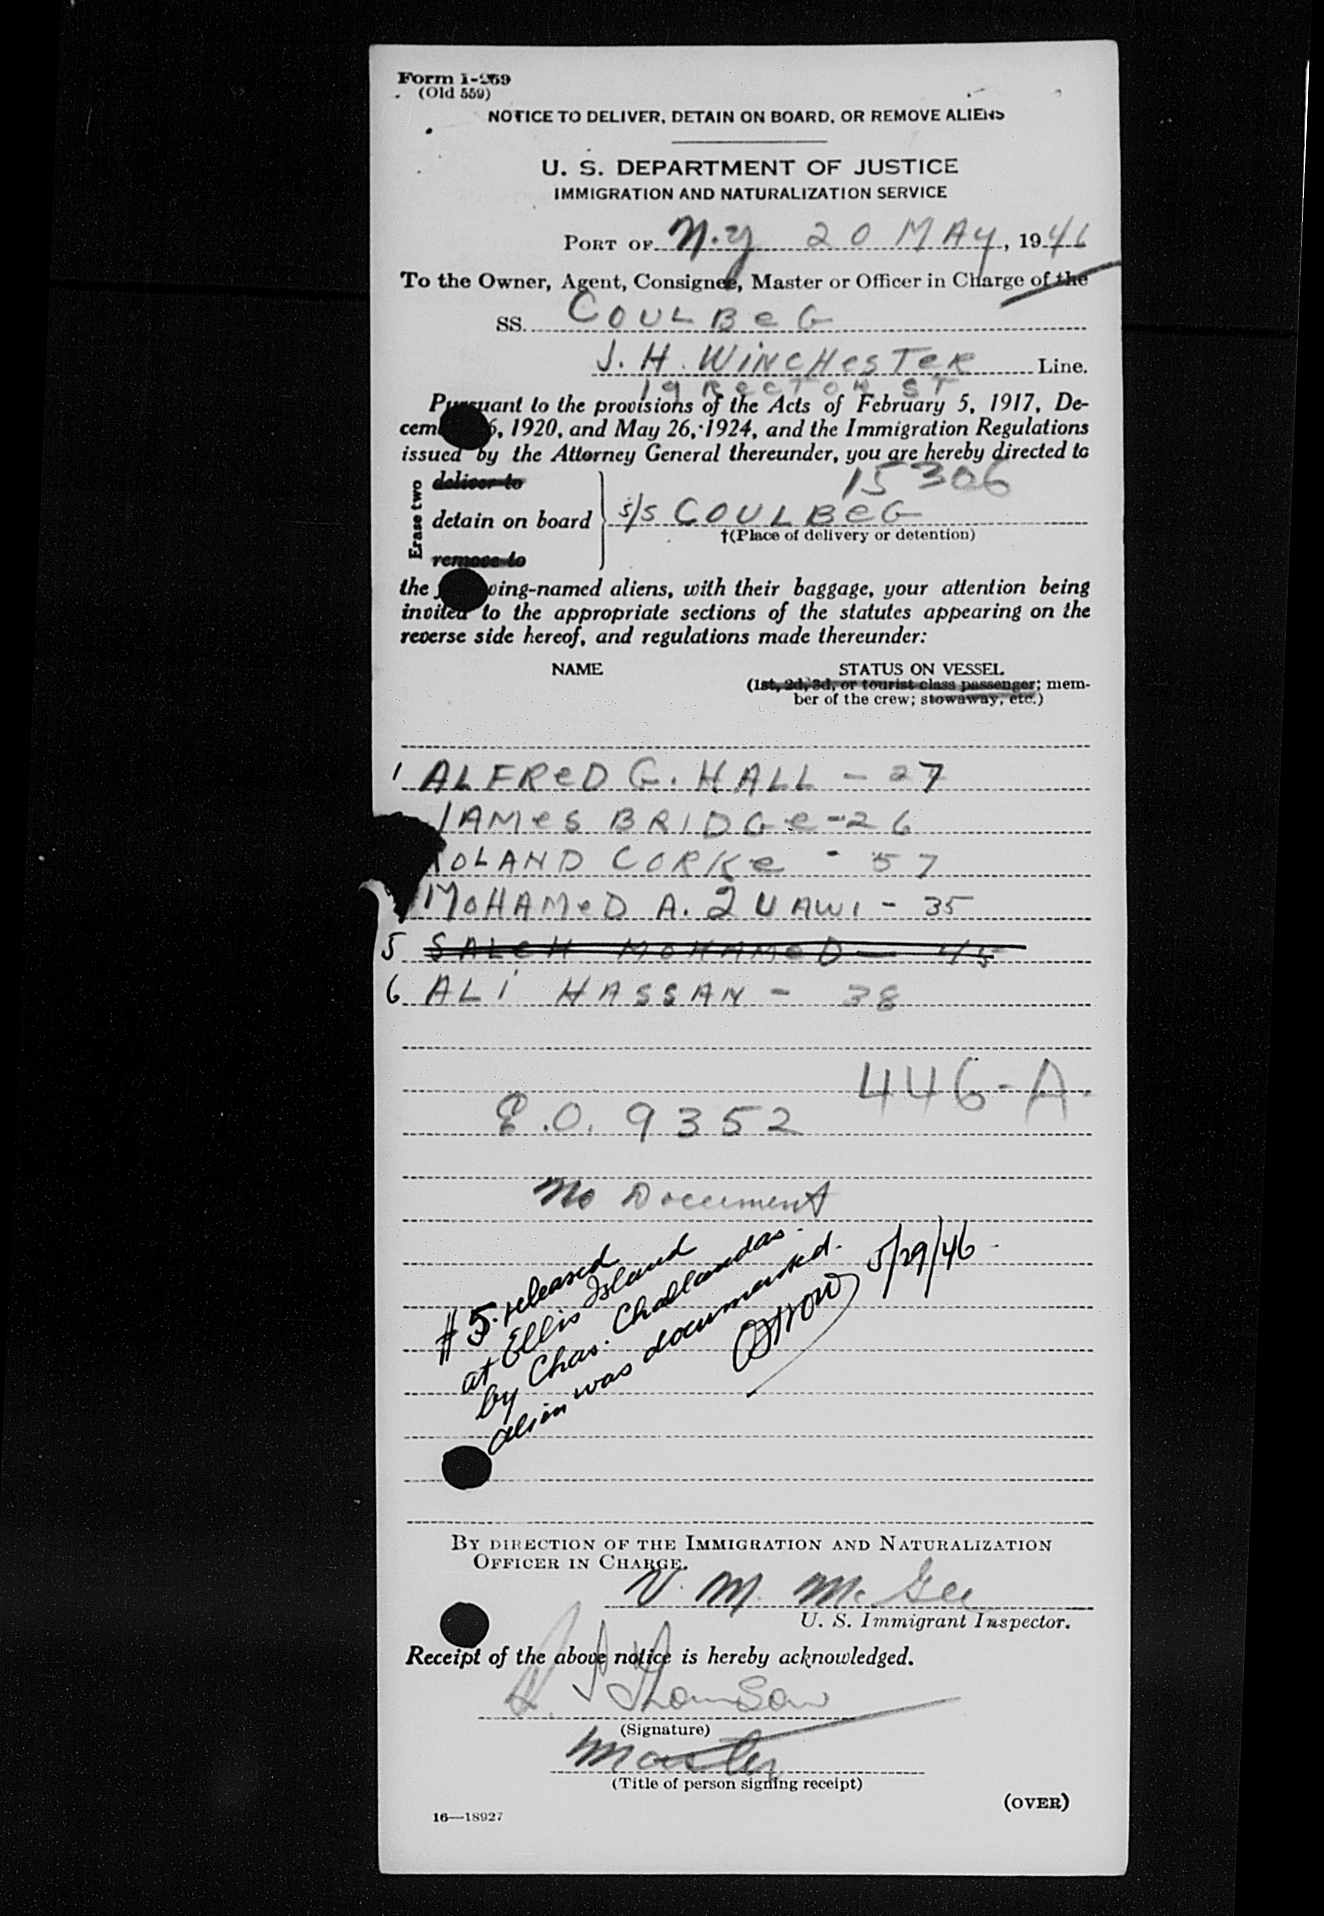 Form I-259
(Old 559)
NOTICE TO DELIVER, DETAIN ON BOARD, OR REMOVE ALIENS
U. S. DEPARTMENT OF JUSTICE
IMMIGRATION AND NATURALIZATION SERVICE
PORT OF N.Y 20 MAY, 1946
To the Owner, Agent, Consignee, Master or Officer in Charge of the
SS. COULBEG
J. H. WINCHESTER Line.
19 RECTOR ST
Pursuant to the provisions of the Acts of February 5, 1917, De-
cem 6, 1920, and May 26, 1924, and the Immigration Regulations
issued by the Attorney General thereunder, you are hereby directed to
15306
Erase two
deliver to
detain on board s/s COULBEG
†(Place of delivery or detention)
remove to
the wing-named aliens, with their baggage, your attention being
invited to the appropriate sections of the statutes appearing on the
reverse side hereof, and regulations made thereunder:
NAME STATUS ON VESSEL
(1st, 2d, 3d, or tourist class passenger; mem-
ber of the crew; stowaway, etc.)
1 ALFRED G. HALL - 27
JAMES BRIDGE - 26
ROLAND CORKE - 57
MOHAMED A. QUAWI - 35
5 SALEH MOHAMED - 45
6 ALI HASSAN - 38
446-A.
E.O. 9352
No Document
#5. released
at Ellis Island
by Chas. Challandas.
alien was documented.
Ostrow 5/29/46
BY DIRECTION OF THE IMMIGRATION AND NATURALIZATION
OFFICER IN CHARGE.
V. M. McGee
U. S. Immigrant Inspector.
Receipt of the above notice is hereby acknowledged.
Thomson
(Signature)
Master
(Title of person signing receipt)
(OVER)
16—18927